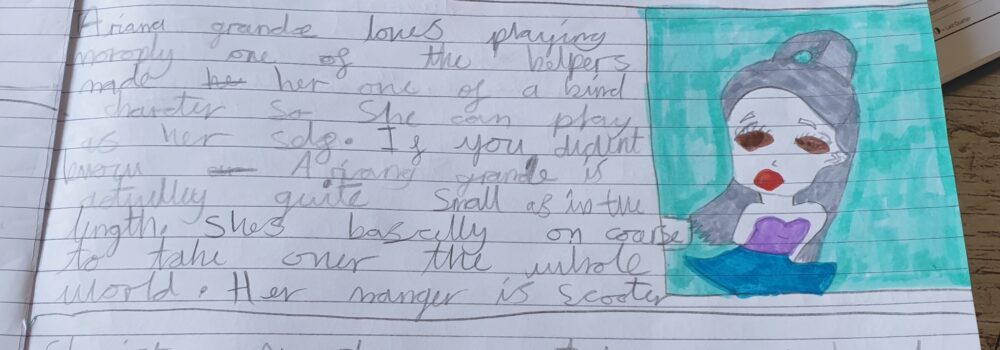 Ariana grande loves playing
monoply one of the helpers
made her one of a kind
charcter so she can play
as her self. If you didint
know Ariana grande is
actually quite small as in the
lingth. shes basclly on coarse
to take over the whole
world. Her manger is scooter